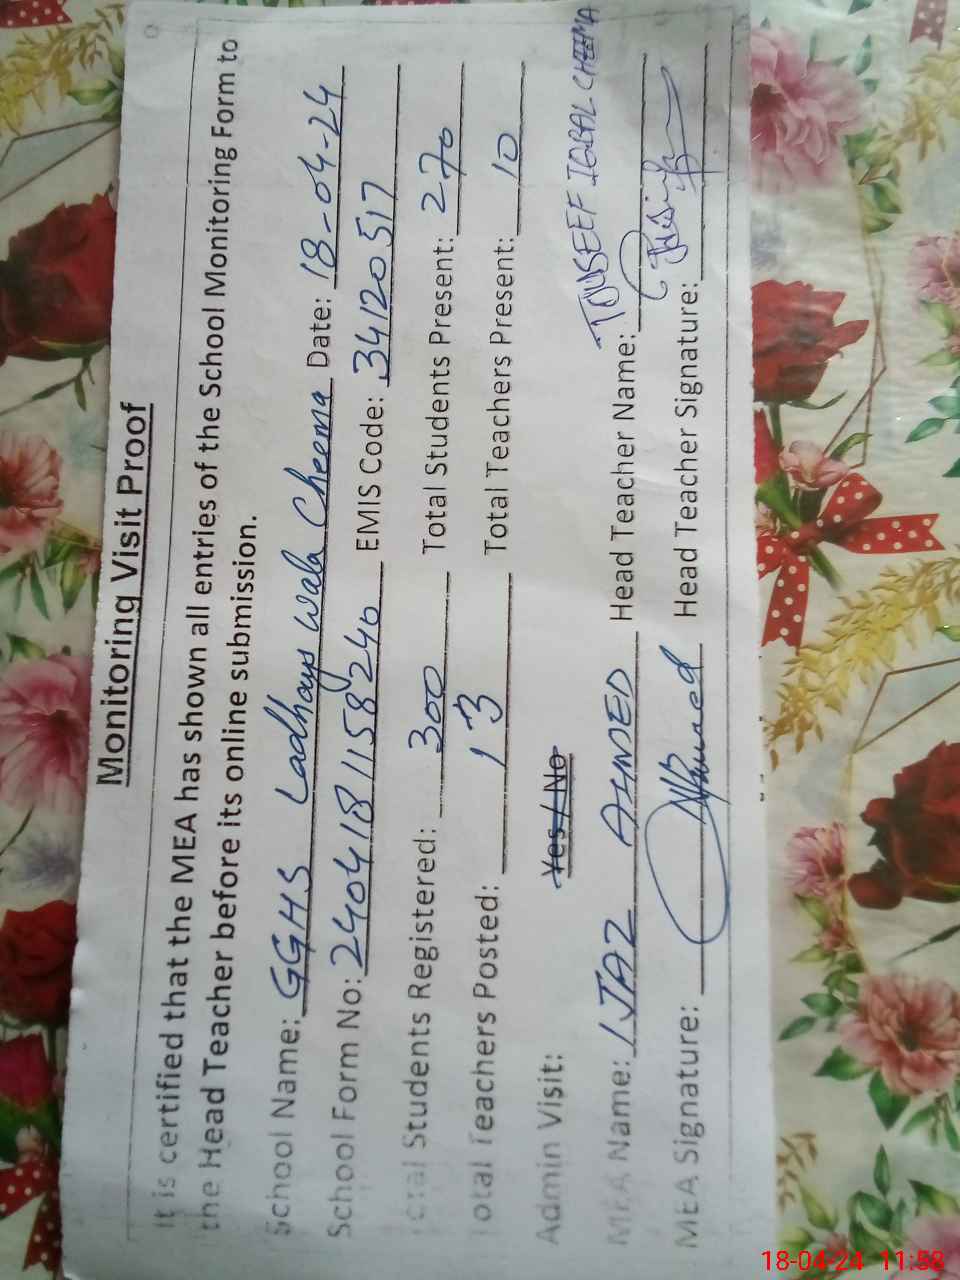 Monitoring Visit Proof
It is certified that the MEA has shown all entries of the School Monitoring Form to
the Head Teacher before its online submission.
School Name: GGHS Ladhay Wala Cheema Date: 18-04-24
School Form No: 2404181158240 EMIS Code: 34120517
Total Students Registered: 300 Total Students Present: 270
Total Teachers Posted: 13 Total Teachers Present: 10
Admin Visit: Yes / No
TOUSEEF IQBAL CHEEMA
MEA Name: IJAZ AHMED Head Teacher Name:
MEA Signature: Head Teacher Signature:
18-04-24 11:58